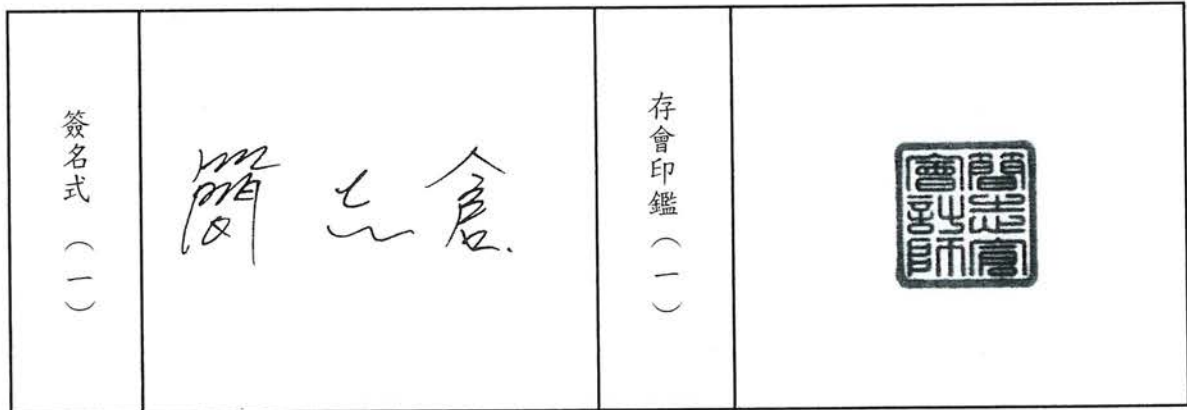 簽名式（一）
簡志倉
存會印鑑（一）
簡志倉
會計師